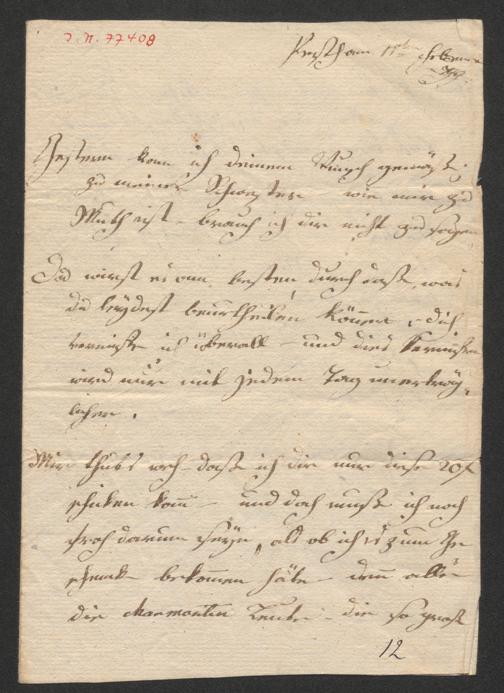 J. N. 77408
Pesth am 15ten
Gestern kam ich deinem Wunsch gemäß
zu meiner Schwester wie mir zu
Muth ist – brauch ich dir nicht zu sagen
Du wirst es am besten durch das, was
du leydest beurtheilen können, dich
vermisse ich überall – und dies Vermissen
wird mir mit jedem Tag unerträg-
licher.
Mir thut's weh daß ich dir nur diese 20 f
schicken kann – und doch muß ich noch
froh darum seyn, als ob ich es zum Ge
schenk bekommen hätte – denn alle
die Leute – die so groß
12